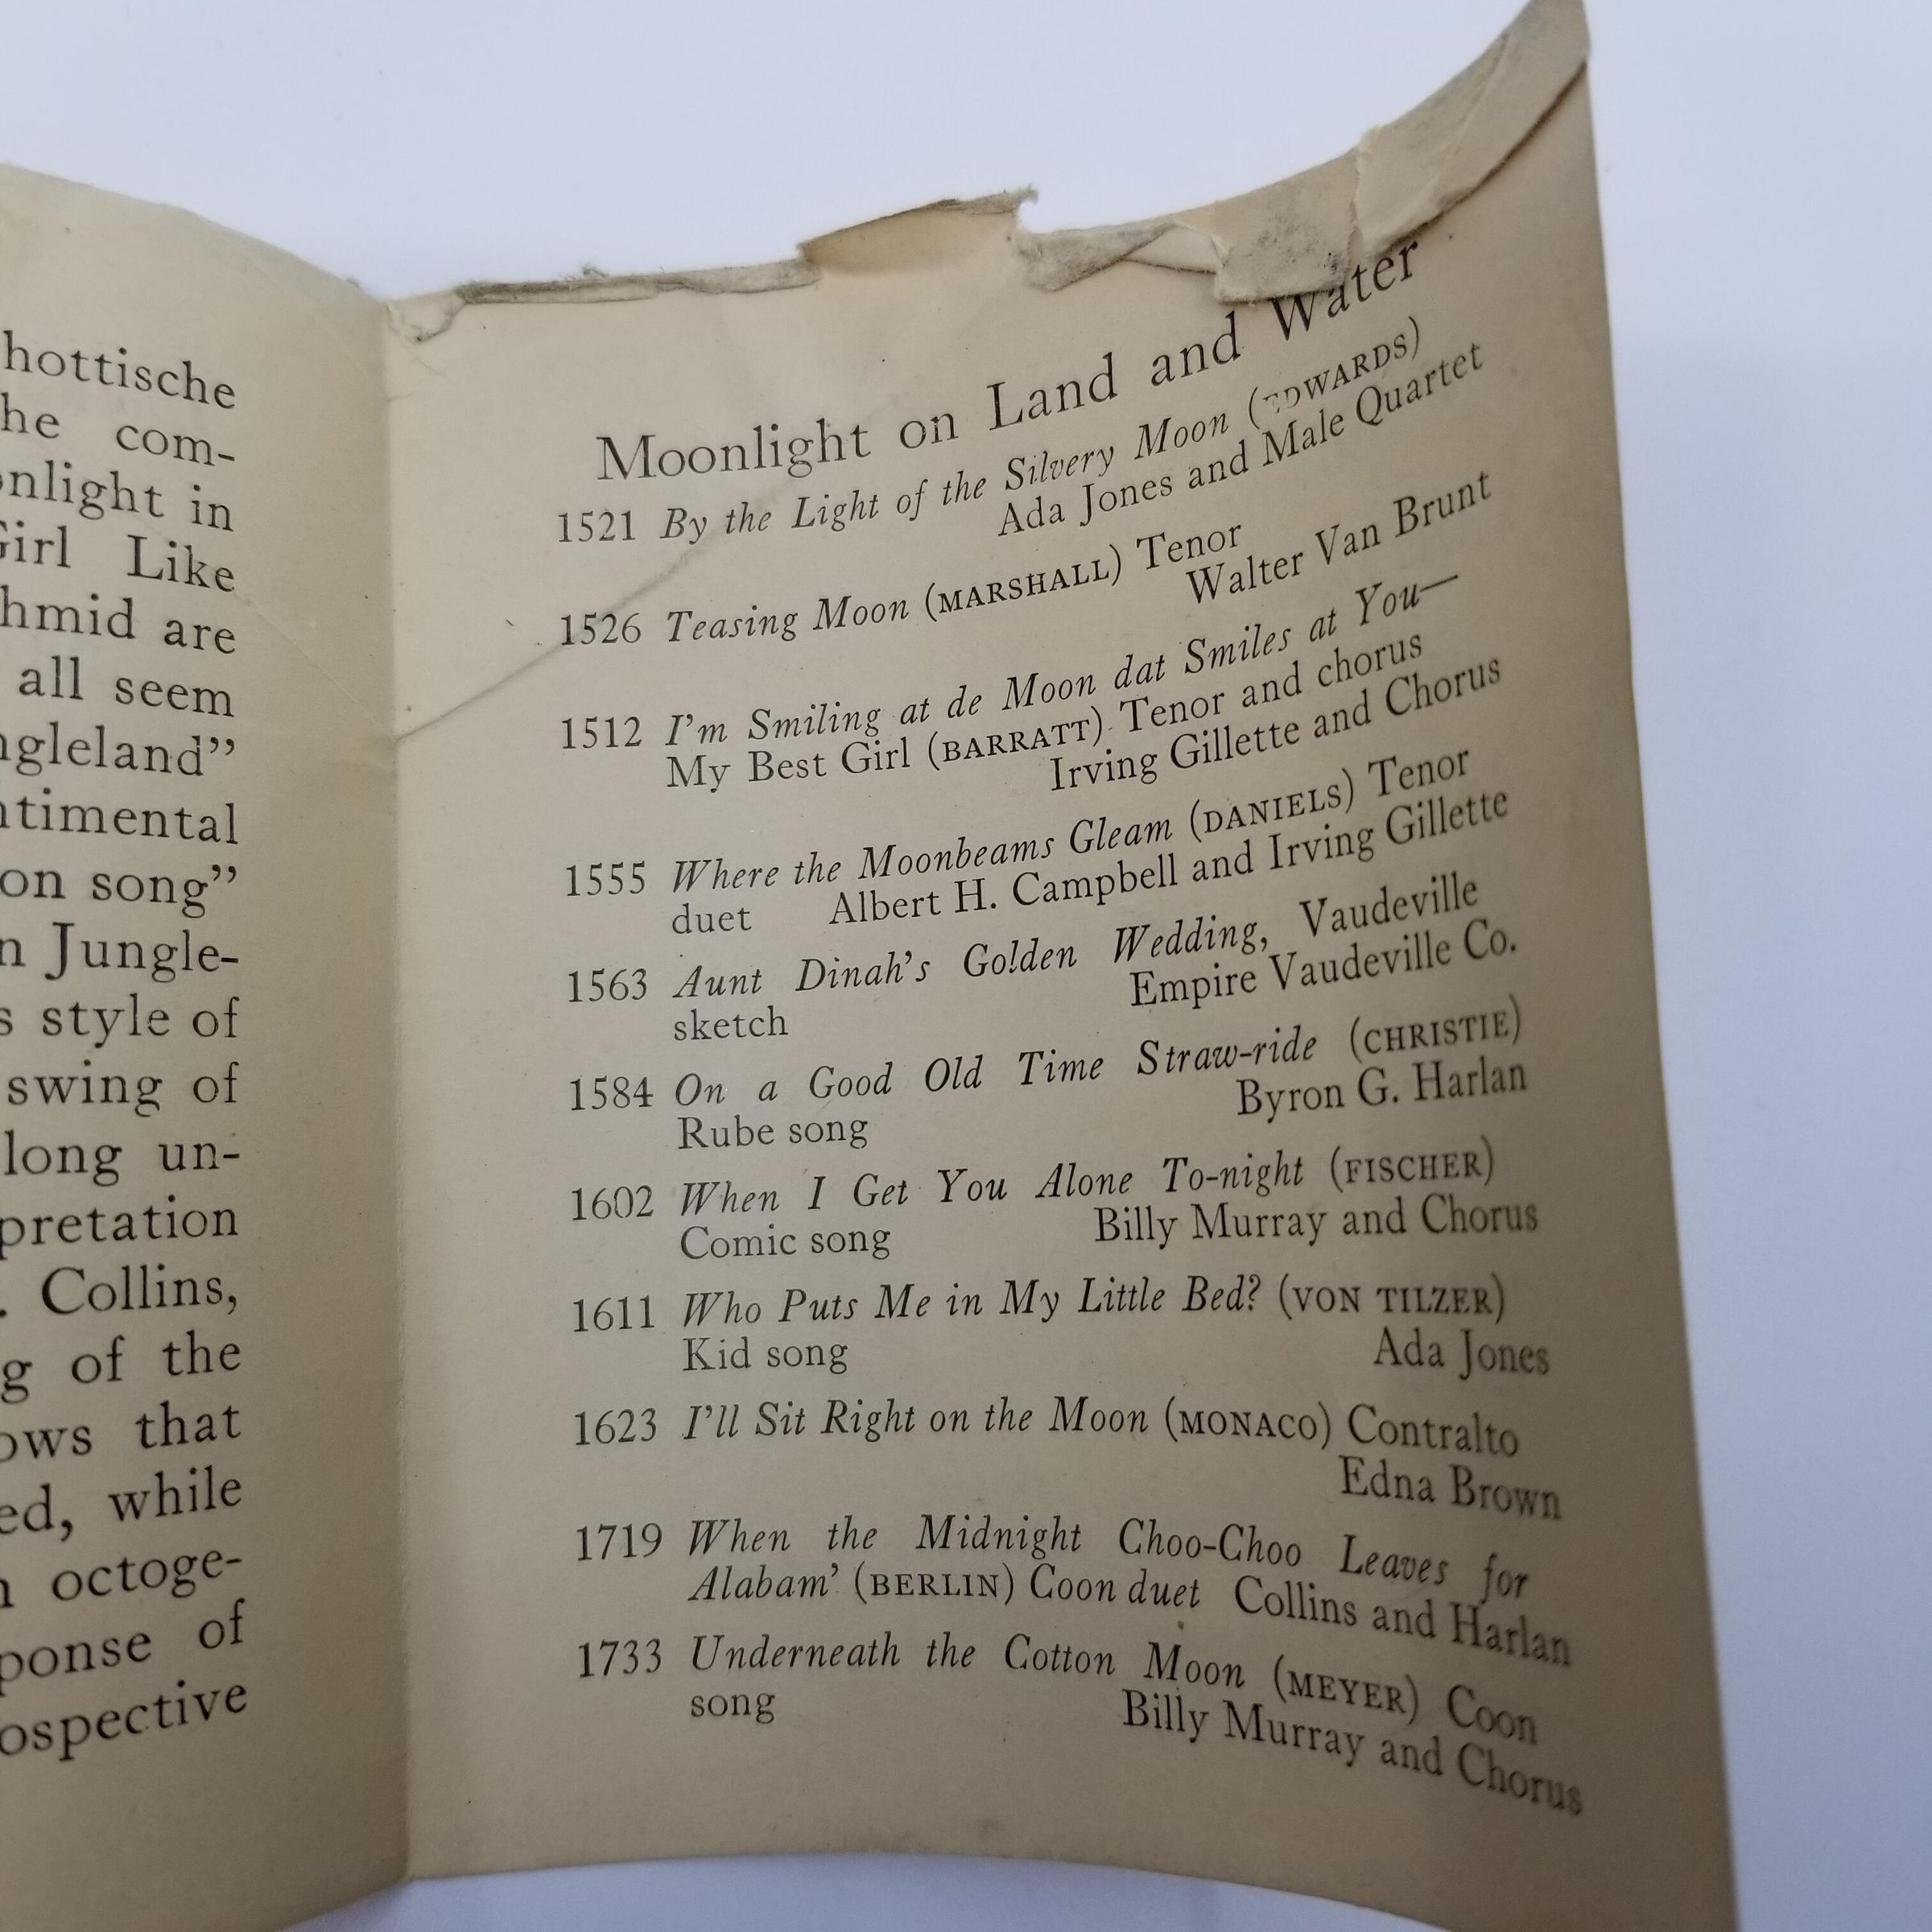 hottische
he com-
nlight in
Girl Like
hmid are
all seem
ngleland”
ntimental
on song”
n Jungle-
s style of
swing of
long un-
pretation
. Collins,
g of the
ows that
ed, while
octoge-
ponse of
ospective
Moonlight on Land and Water
1521 By the Light of the Silvery Moon (EDWARDS)
Ada Jones and Male Quartet
1526 Teasing Moon (MARSHALL) Tenor
Walter Van Brunt
1512 I’m Smiling at de Moon dat Smiles at You—
My Best Girl (BARRATT) Tenor and chorus
Irving Gillette and Chorus
1555 Where the Moonbeams Gleam (DANIELS) Tenor
duet Albert H. Campbell and Irving Gillette
1563 Aunt Dinah’s Golden Wedding, Vaudeville
sketch Empire Vaudeville Co.
1584 On a Good Old Time Straw-ride (CHRISTIE)
Rube song Byron G. Harlan
1602 When I Get You Alone To-night (FISCHER)
Comic song Billy Murray and Chorus
1611 Who Puts Me in My Little Bed? (VON TILZER)
Kid song Ada Jones
1623 I’ll Sit Right on the Moon (MONACO) Contralto
Edna Brown
1719 When the Midnight Choo-Choo Leaves for
Alabam’ (BERLIN) Coon duet Collins and Harlan
1733 Underneath the Cotton Moon (MEYER) Coon
song Billy Murray and Chorus